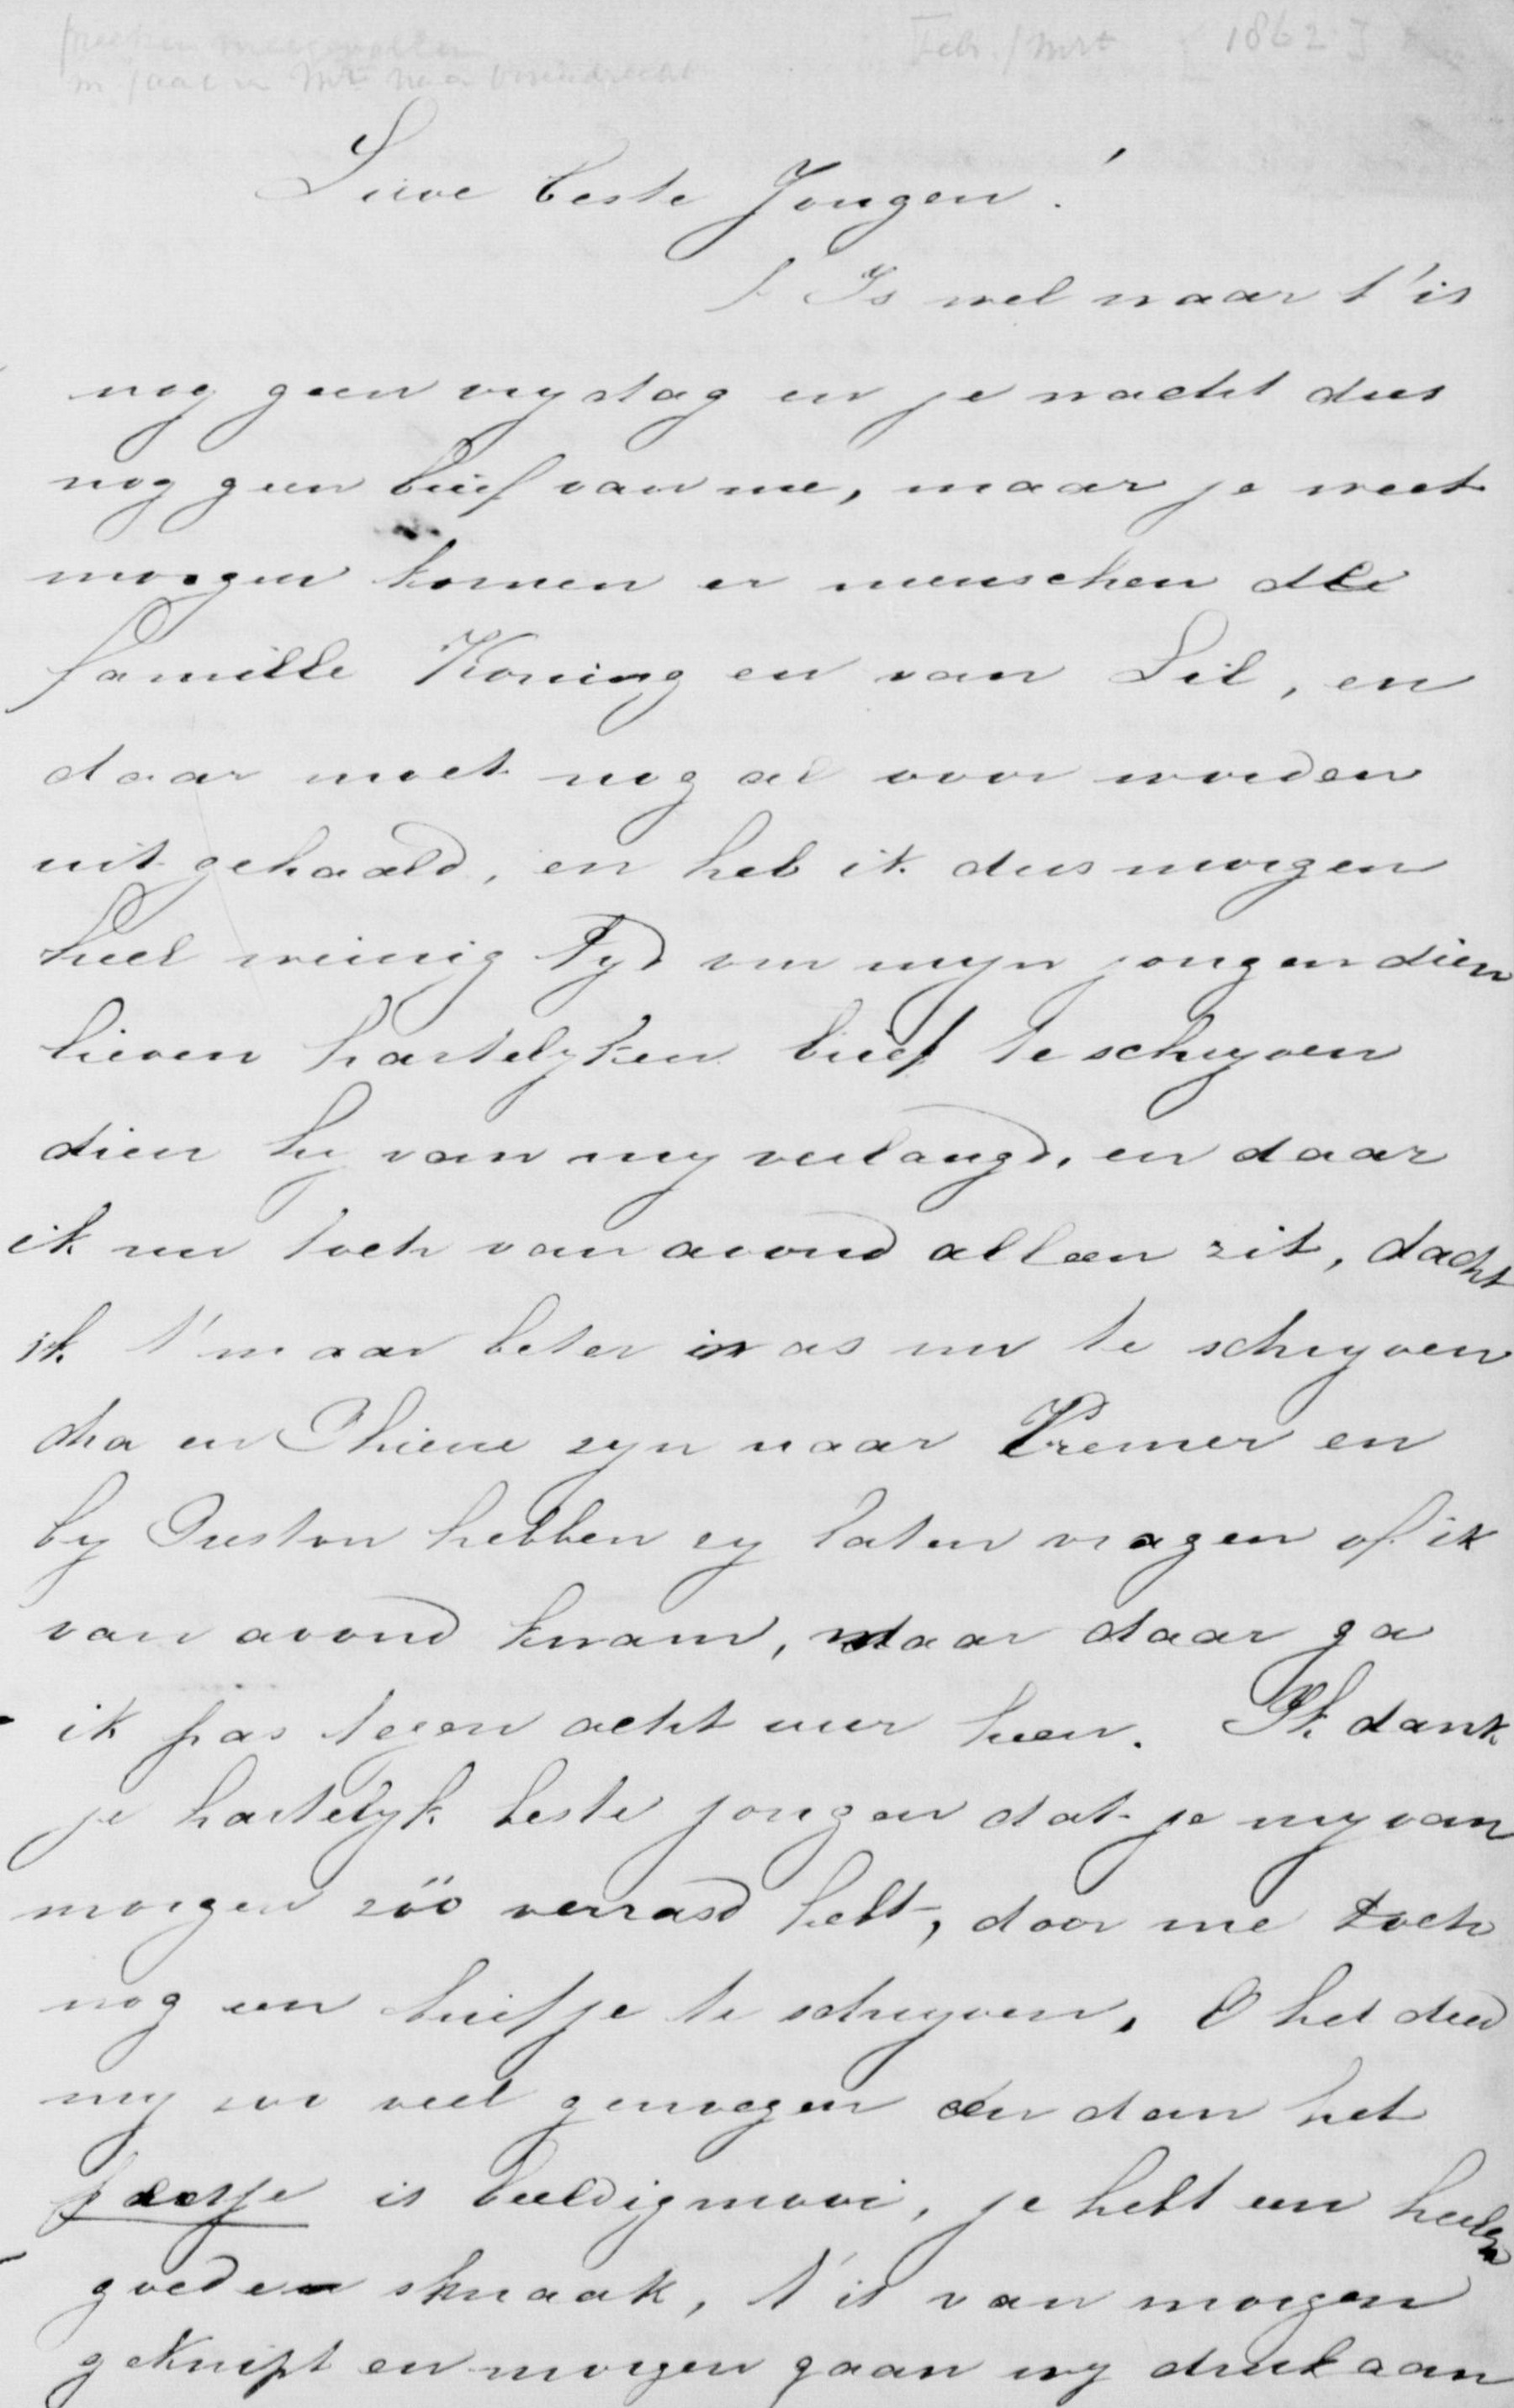 Feb. / Mrt [1862]
Lieve beste Jongen!
t Is wel waar t'is
nog geen vrydag en je wacht dus
nog geen brief van me, maar je weet
morgen komen er menschen de
famille Koning en van Lil, en
daar moet nog al voor worden
uit gehaald, en heb ik dus morgen
heel weinig tyd om myn jongen dien
lieven hartelyken brief te schryven
dien hy van my verlangd, en daar
ik nu toch van avond alleen zit, dacht
ik t' maar beter was nu te schryven
en Thiene zyn naar Kremer en
by Guston hebben zy laten vragen of ik
van avond kwam, maar daar ga
ik pas tegen acht uur heen. Ik dank
je hartelyk beste jongen dat je my van
morgen zöö verrasd hebt, door me toch
nog een briefje te schryven. O het deed
my zoo veel genoegen en dan het
is beeldig mooi, je hebt een heelen
goeden smaak, t'is van morgen
geknipt en morgen gaan wy druk aan